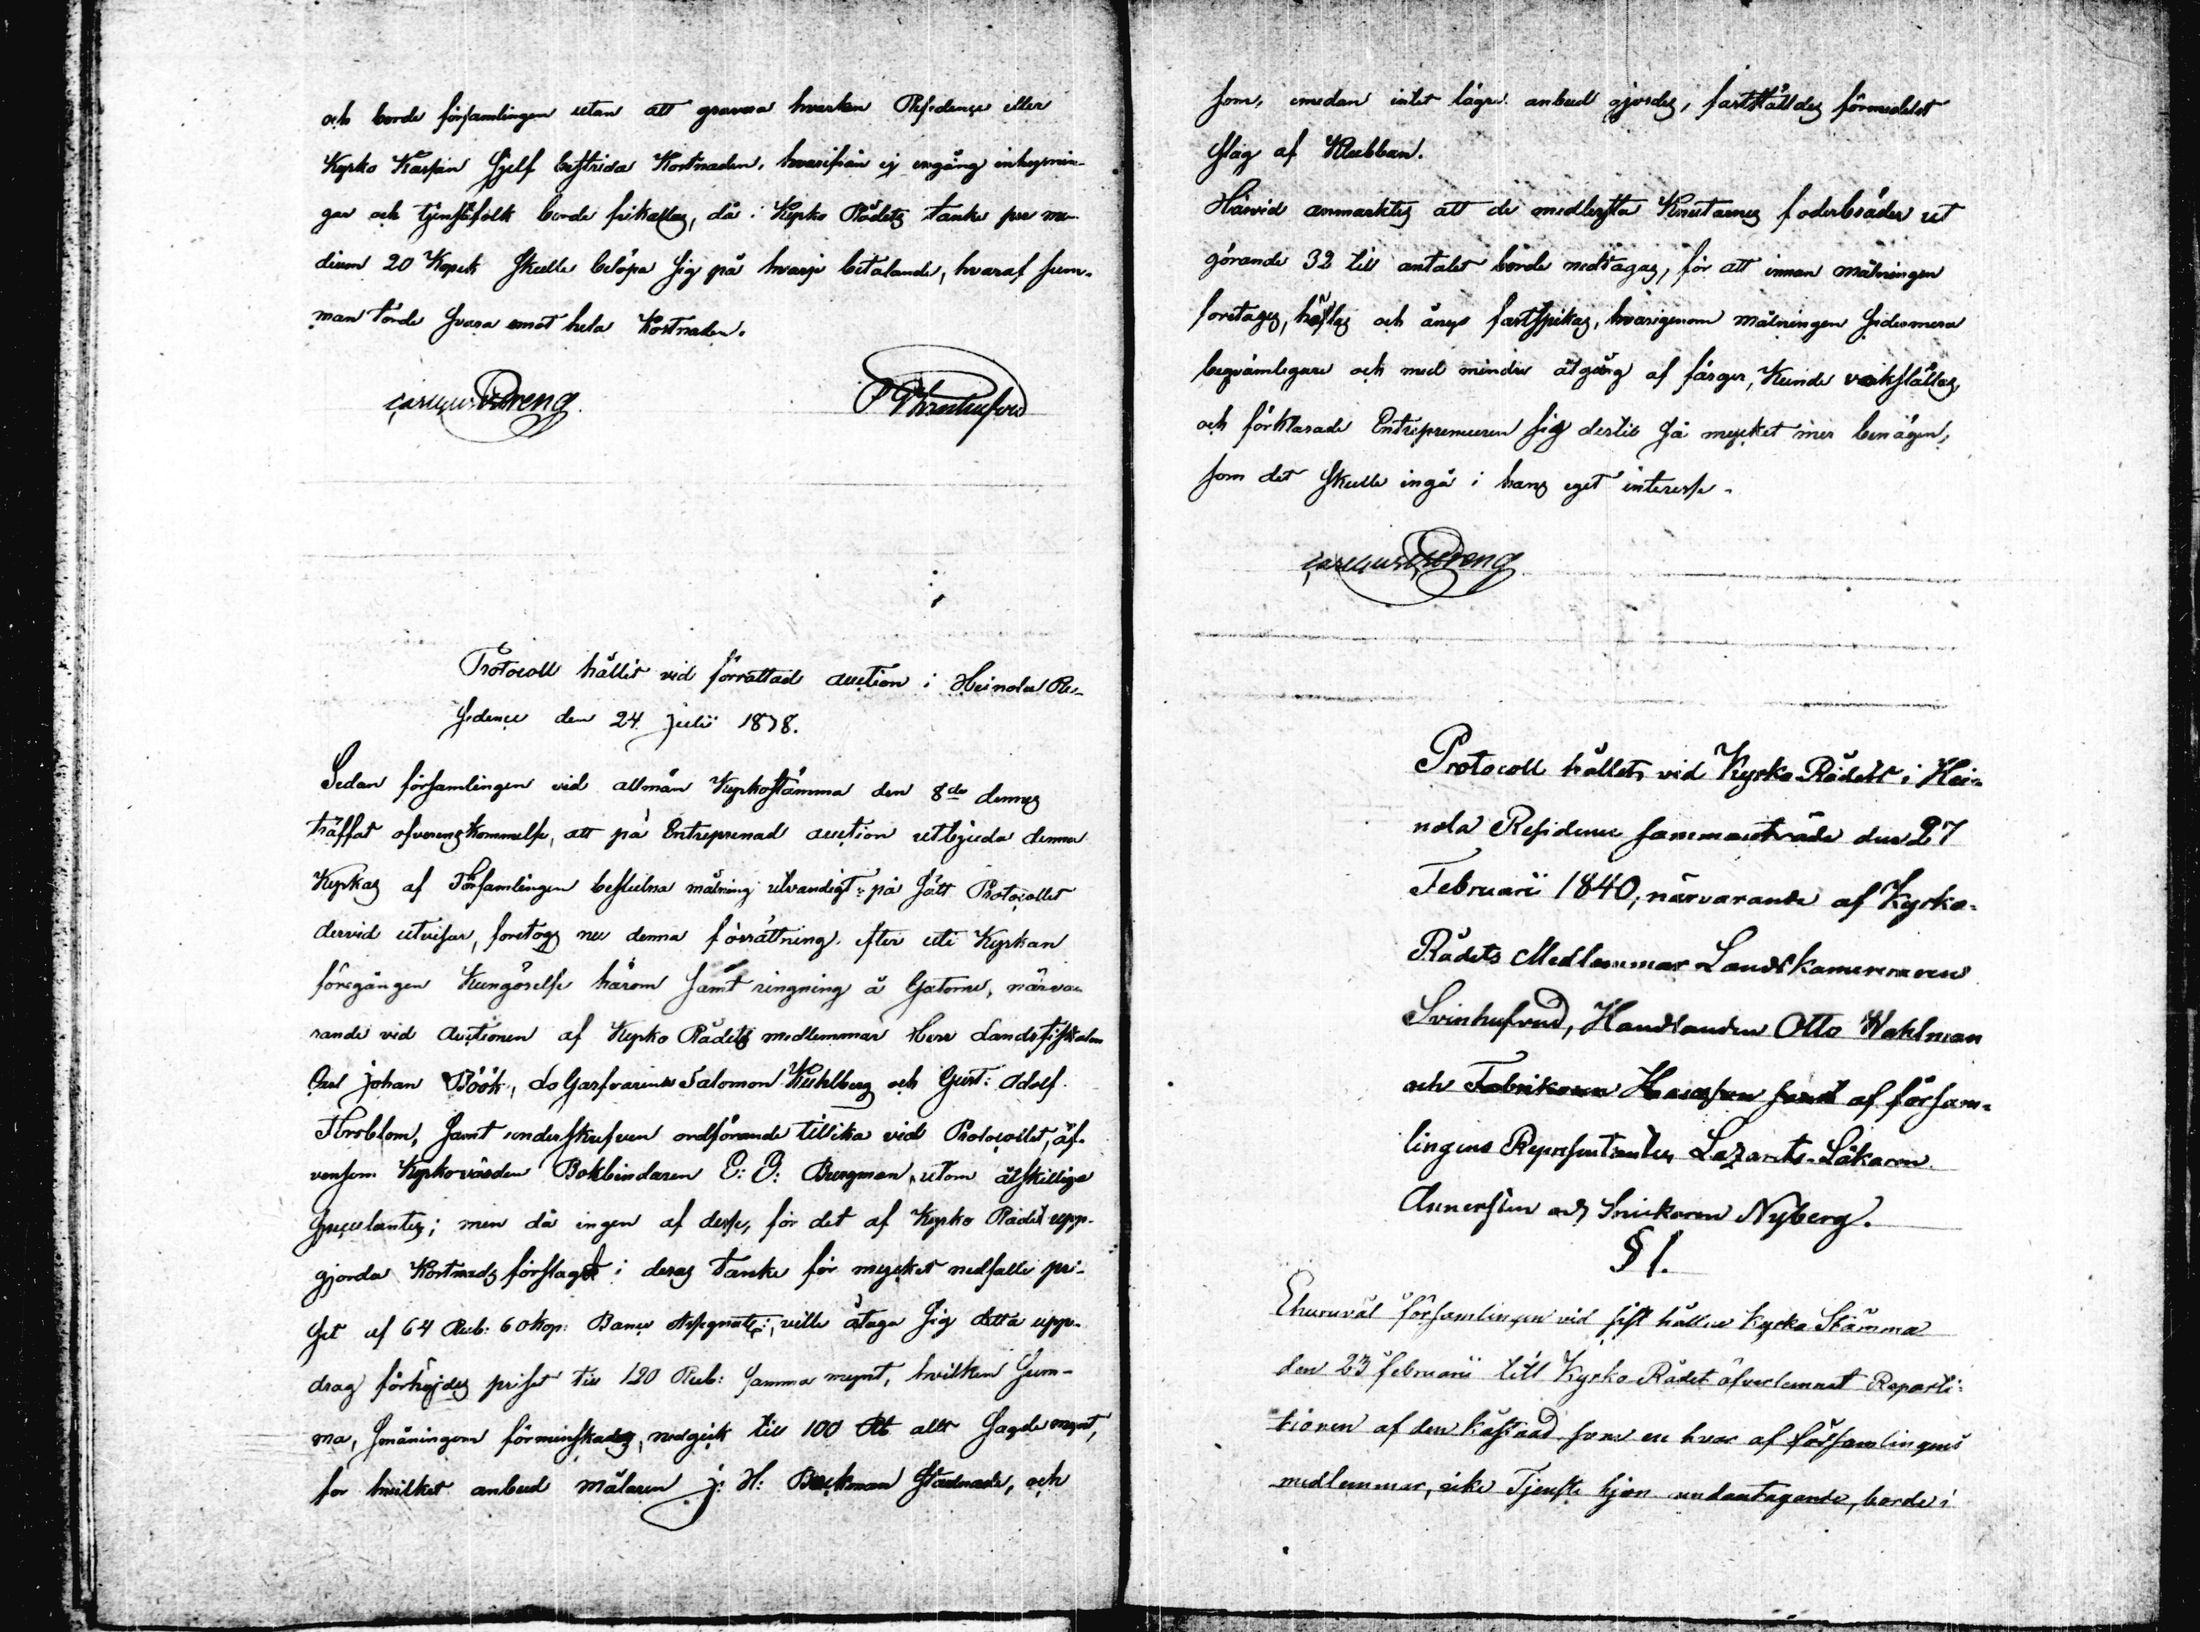 och borde församlingen utan att gravera hvarken Residence eller
Kyrko Kassan sjelf bestrida Kostnaden, hvarifrån ej engång inhysnin-
gar och tjenstefolk borde frikallas, då i Kyrko Rådets tanke per me-
dium 20 Kopek skulle belöpa sig på hvarje betalande, hvaraf sum-
man torde svara emot hela Kostnaden.
Protocoll hållit vid förrättad auction i Heinola Re-
sidence den 24 Julii 1838.
Sedan församlingen vid allmän Kyrkostämma den 8de dennes
träffat öfverenskommelse, att på Entreprenad auction utbjuda denna
Kyrkas af Församlingen beslutna målning utvändigt; på sätt Protocollet
dervid utvisar, företogs nu denna förrättning efter uti Kyrkan
föregången Kungörelse härom samt ringning å Gatorne, närva-
rande vid Auctionen af Kyrko Rådets medlemmar Herr Landsfiskalen
Carl Johan Böök, Logarfvarene Salomon Kuhlberg och Gust: Adolf
Forsblom, samt underskrefven ordförande tillika vid Protocollet, äf-
vensom Kyrkovärden Bokbindaren E: G: Bergman, utom åtskillige
speculanter; men då ingen af desse, för det af Kyrko Rådet upp-
gjorda Kostnads förslaget i deras tanke för mycket nedsatte pri-
set af 64 Rub: 60 Kop: Banco Assignats:, ville åtaga sig detta upp-
drag förhöjdes priset till 120 Rub: samma mynt, hvilken Sum-
ma, småningom förminskades, nedgick till 100 Rb allt sagde mynt,
för hvilket anbud målaren J: H: Beckman stadnade, och
som, emedan intet lägre anbud gjordes, fastställdes förmedelst
slag af Klubban.
Härvid anmärktes att de medlersta Knutarnes foderbräder ut
görande 32 till antalet borde nedtagas, för att innan målningen
företages, hyflas och ånyo fastspikas, hvarigenom målningen sedermera
beqvämligare och med mindre åtgång af färger, Kunde verkställas,
och förklarade Entrepreneuren sig dertill så mycket mer benägen,
som det skulle ingå i hans eget interesse.
Protocoll hållet, vid Kyrko-Rådets i Hei-
nola Residence sammanträde den 27
Februarii 1840, närvarande af Kyrko-
Rådets Medlemmar Landskamereraren
Svinhufvud, Handlanden Otto Wahlman
och Fabrikören af försam-
lingens Representanter Lazarets-Läkaren
Annersten och Snickaren Nyberg.
§ 1.
Ehuruväl församlingen vid sist hållne Kyrko Stämma
den 23 februarii till Kyrko-Rådet öfverlemnat Reparti-
tionen af den kostnad som en hvar af församlingens
medlemmar, icke Tjenste hjon undantagande, borde i